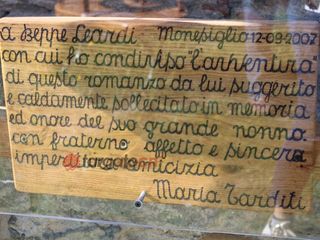 a Beppe Leardi Monesiglio 12-09-2007
con cui ho condiviso "l'avventura"
di questo romanzo da lui suggerito
e caldamente sollecitato in memoria
ed onore del suo grande nonno.
con fraterno affetto e sincera
amicizia
Maria Tarditi